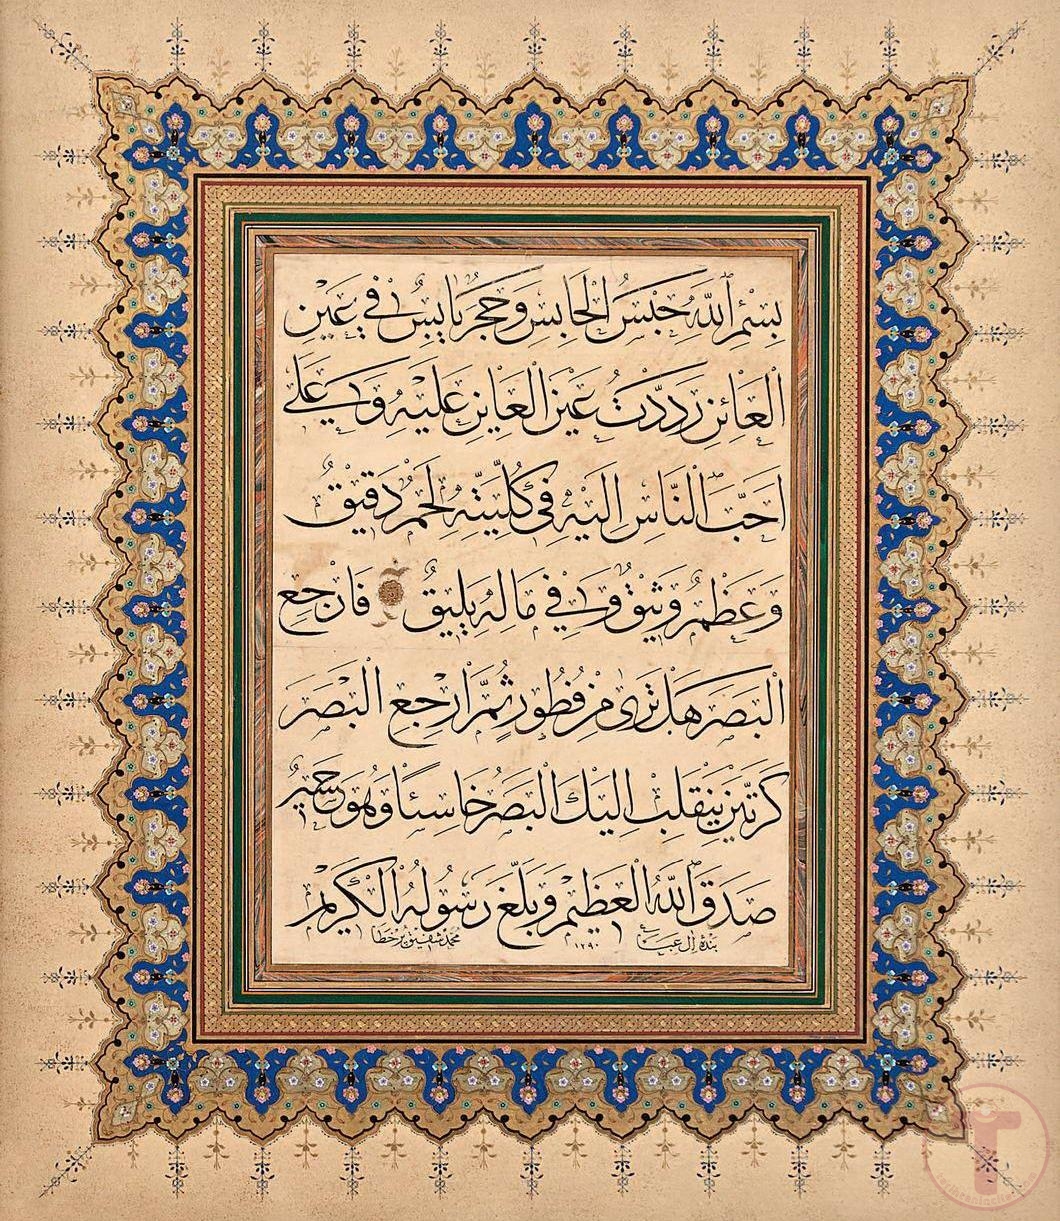 بِسْمِ اللّٰهِ حَبْسُ الْحَابِسِ وَحَجَرٍ يَابِسٍ فِي عَيْنِ
الْعَائِنِ رَدَدْتُ عَيْنَ الْعَايِنِ عَلَيْهِ وَ عَلٰى
اَحَبِّ النَّاسِ اِلَيْهِ فِي كُلْيَتِهِ لَحْمٌ دَقِيقٌ
وَعَظْمٌ وَثِيقٌ وَ فِي مَا لِهِ يَلِيقُ فَارْجِعِ
الْبَصَرَ هَلْ تَرٰى مِنْ فُطُورٍ ثُمَّ ارْجِعِ الْبَصَرَ
كَرَّتَيْنِ يَنْقَلِبْ اِلَيْكَ الْبَصَرُ خَاسِئًا وَهُوَ حَسِيرٌ
صَدَقَ اللّٰهُ الْعَظِيمُ وَبَلَّغَ رَسُولُهُ الْكَرِيمُ
بنده آل عبا ١٢٩٠ محمد شفيق پر خطا